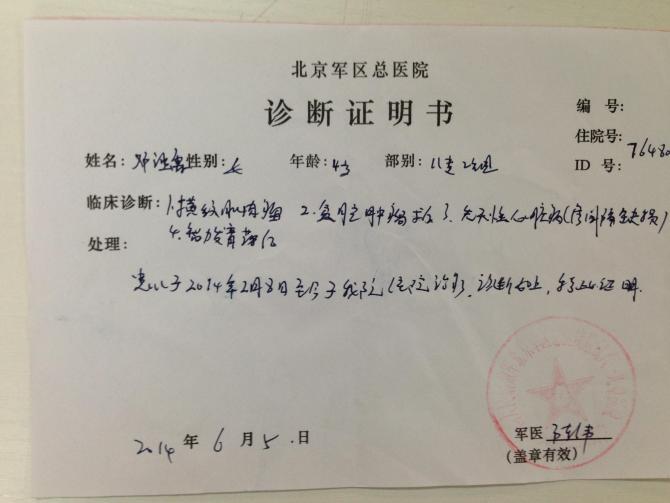 北京军区总医院
诊断证明书
编 号:
住院号: 76480
ID 号:
姓名: 邓 性别: 女 年龄: 4岁 部别: 儿
临床诊断: 1.横纹肌肉瘤 2.复腔肿瘤 3.先天性心脏病(房间隔缺损)
处理: 4.
患儿于2014年2月8日至今于我院住院治疗, 诊断如上, 特此证明.
2014 年 6 月 5 日
军医
(盖章有效)